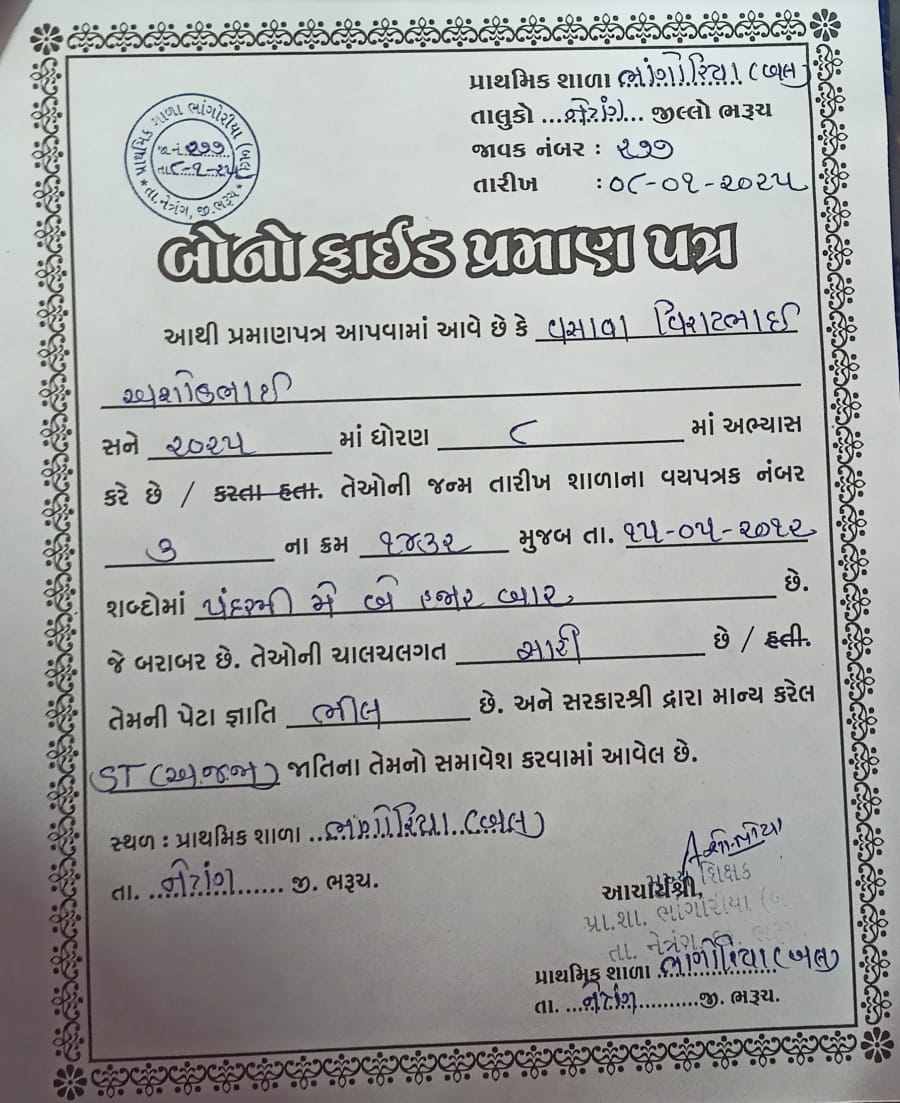 પ્રાથમિક શાળા ભાંગોરિયા (બલ)
તાલુકો ...નેત્રંગ... જીલ્લો ભરૂચ
જાવક નંબર : ૨૭૭
તારીખ : ૦૮-૦૧-૨૦૨૫
પ્રાથમિક શાળા ભાંગોરીયા (બલ)
જા.નં. ૨૭૭
તા. ૮-૧-૨૫
તા. નેત્રંગ, જી. ભરૂચ
બોનોફાઈડ પ્રમાણ પત્ર
આથી પ્રમાણપત્ર આપવામાં આવે છે કે વસાવા વિરાટભાઈ
અશોકભાઈ
સને ૨૦૨૫ માં ધોરણ ૮ માં અભ્યાસ
કરે છે / કરતા હતા. તેઓની જન્મ તારીખ શાળાના વયપત્રક નંબર
૩ ના ક્રમ ૧૪૩૨ મુજબ તા. ૧૫-૦૫-૨૦૧૨
શબ્દોમાં પંદરમી મે બે હજાર બાર છે.
જે બરાબર છે. તેઓની ચાલચલગત સારી છે / હતી.
તેમની પેટા જ્ઞાતિ ભીલ છે. અને સરકારશ્રી દ્વારા માન્ય કરેલ
ST (અ.જ.જા) જાતિના તેમનો સમાવેશ કરવામાં આવેલ છે.
સ્થળ : પ્રાથમિક શાળા ..ભાંગોરિયા..(બલ)
તા. ...નેત્રંગ...... જી. ભરૂચ.
આચાર્યશ્રી,
શિક્ષક
પ્રા.શા. ભાંગોરીયા (બ
તા. નેત્રંગ
પ્રાથમિક શાળા ભાંગોરિયા (બલ)
તા. ...નેત્રંગ.........જી. ભરૂચ.